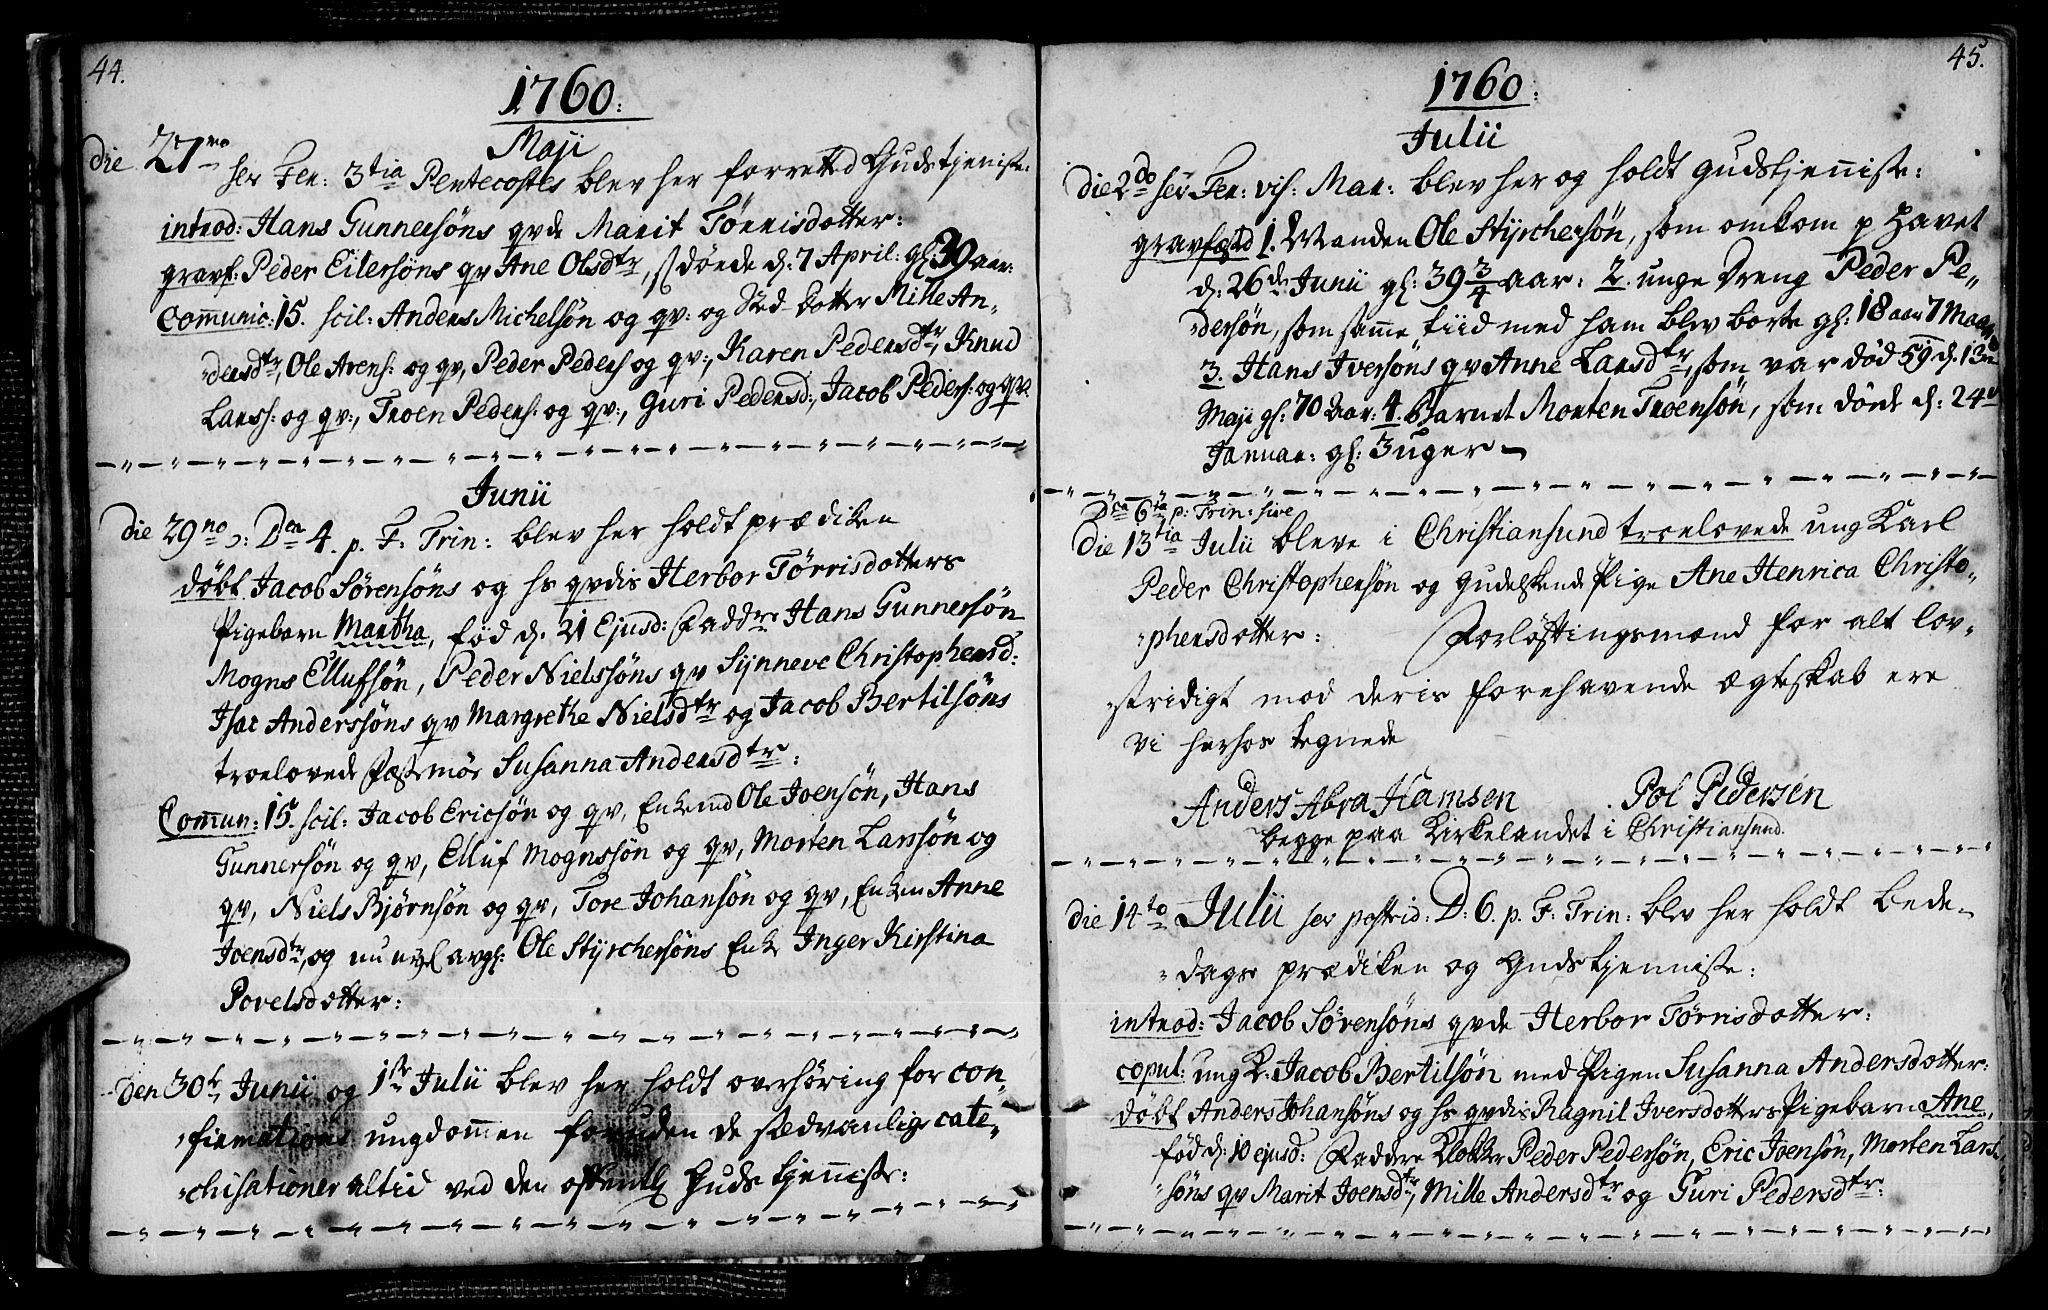 44.
1760:
Maji
die 27mo sev Fer: 3tia Pentecostes blev her forretted Gudstjeniste:
introd: Hans Gunnersøns qvde Marit Tørrisdotter:
gravf: Peder Eilersøns qv Ane Olsdtr, døde d: 7 April: gl: 39 aar:
Communic: 15. scil: Anders Michelsøn og qv: og Sted-Dotter Mille An-
dersdtr, Ole Arens: og qv, Peder Peders og qv:, Karen Pedersdtr, Knud
Larss: og qv:, Troen Peders: og qv:, Guri Pedersd:, Jacob Peders: og qv:
Junii
die 29no ɔ: Dca 4. p. F: Trin: blev her holdt prædiken
døbt Jacob Sørensøns og hs qvdis Herbor Tørrisdotters
Pigebarn Martha, fød d. 21 Ejusd: Faddre Hans Gunnersøn
Mogns Ellufsøn, Peder Nielssøns qv Synneve Christophersd:
Isac Anderssøns qv Margrethe Nielsdtr og Jacob Bertilsøns
troelovede Fæstemøe Susanna Andersdtr:
Commun: 15. scil: Jacob Ericsøn og qv, Enkemd Ole Joensøn, Hans
Gunnersøn og qv, Elluf Mognssøn og qv, Morten Larssøn og
qv, Niels Bjørnsøn og qv, Tore Johansøn og qv, Enken Anne
Joensdtr, og nu avgl: Ole Styrchersøns Enke Inger Kirstina
Povelsdotter:
den 30te Junii og 1ste Julii blev her holdt overhøring for con-
firmations ungdommen foruden de sædvanlige cate-
chisationer altid ved den offentl Gudstjenniste:
45.
1760:
Julii
die 2do sev Fer: vis: Mar: blev her og holdt gudstjenniste:
gravfæstd 1. Manden Ole Styrchersøn, som omkom p Havet
d: 26de Junii gl: 39 3/4 aar: 2. unge Dreng Peder Pe-
dersøn, som samme tiid med ham blev borte gl: 18 aar 7 Maan
3. Hans Iversøns qv Anne Larsdtr, som var død d. 13
Maji gl: 70 Aar: 4. Barnet Morten Troensøn, som døde d: 24
Januar: gl: 3 uger
Dca 6ta p: Trin: sive
die 13tia Julii bleve i Christiansund troelovede ung Karl
Peder Christophersøn og gudelskende Pige Ane Henrica Christo-
phersdotter: Forløftingsmænd for alt lov-
stridigt mod deris forehavende ægteskab ere
vi herhos tegnede
Anders AbraHamsen Pol Pedersen
begge paa Kirkelandet i Christiansund.
die 14to Julii sev postrid: D: 6. p. F: Trin: blev her holdt Bede-
dags prædiken og Gudstjenniste:
introd: Jacob Sørensøns qvde Herbor Tørrisdotter:
copul: ung K. Jacob Bertilsøn med Pigen Susanna Andersdotter:
døbt Anders Johansøns og hs qvdis Ragnil Iversdotters Pigebarn Ane,
fød d: 10 ejusd: Faddere Klokker Peder Pedersøn, Eric Joensøn, Morten Lars-
søns qv Marit Joensdtr, Mille Andersdtr og Guri Pedersdtr: